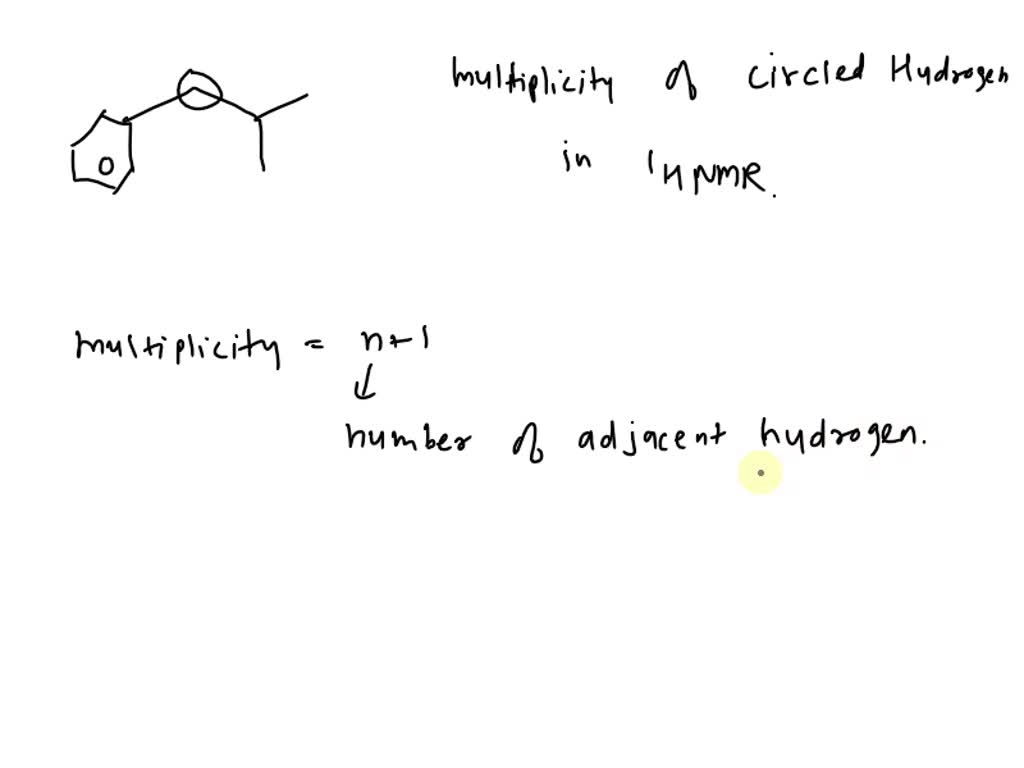 multiplicity of circled Hydrogen
in 1H NMR.
multiplicity = n+1
number of adjacent hydrogen.